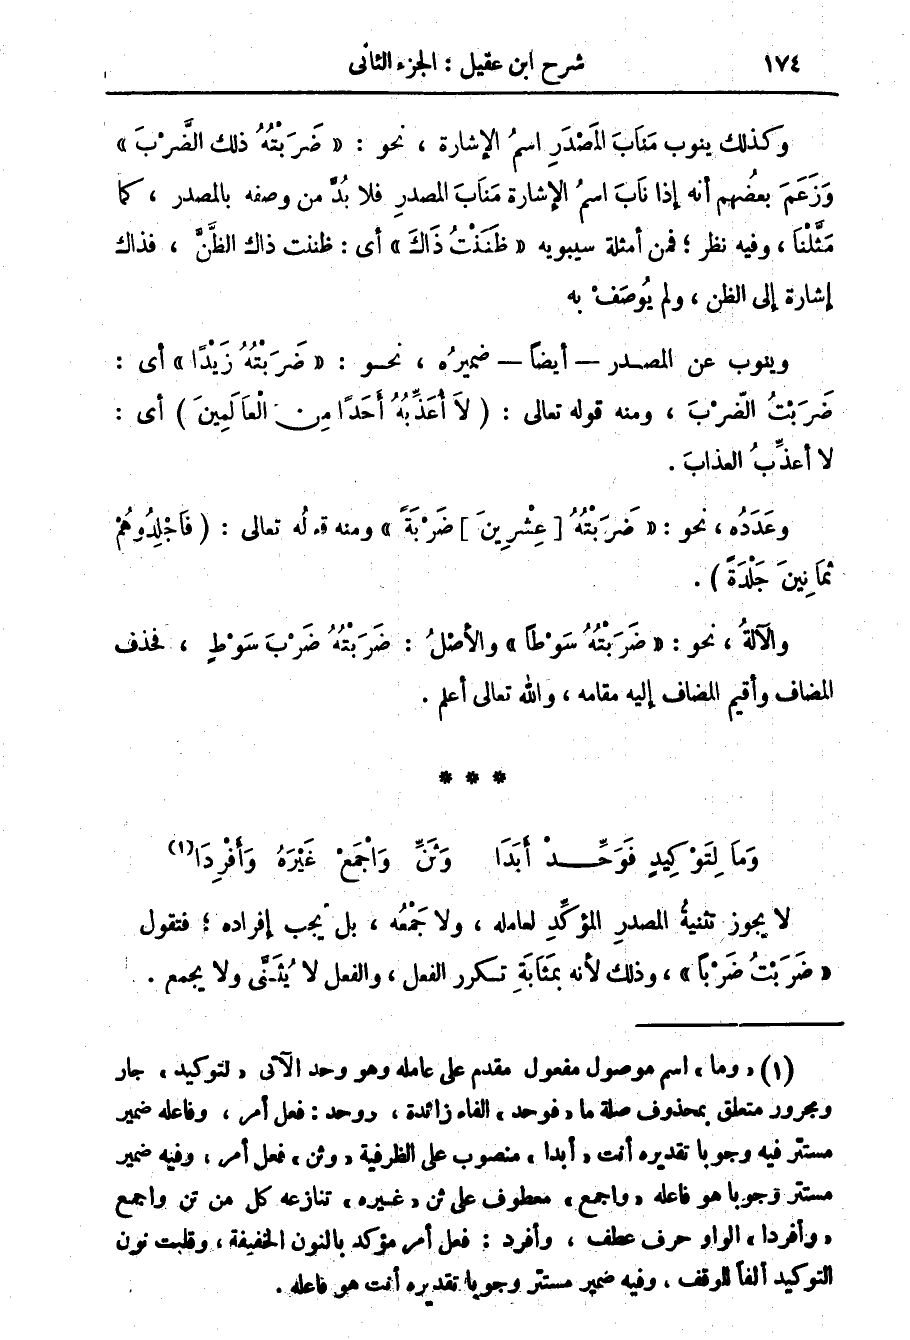 ١٧٤ شرح ابن عقيل : الجزء الثانى
وكذلك ينوب مَنَابَ المَصْدَرِ اسمُ الإشارة ، نحو : « ضَرَبْتُهُ ذلك الضَّرْبَ »
وَزَعَمَ بعضُهم أنه إذا نَابَ اسمُ الإشارة مَنَابَ المصدرِ فلا بُدَّ من وصفه بالمصدر ، كما
مَثَّلْنَا ، وفيه نظر ؛ فمن أمثلة سيبويه « ظَنَنْتُ ذَاكَ » أى : ظننت ذاك الظَّنَّ ، فذاك
إشارة إلى الظن ، ولم يُوصَفْ به
وينوب عن المصدر — أيضاً — ضميرُه ، نحو : « ضَرَبْتُهُ زَيْدًا » أى :
ضَرَبْتُ الضّرْبَ ، ومنه قوله تعالى : ( لاَ أُعَذِّبُهُ أَحَدًا مِنَ الْعَالَمِينَ ) أى :
لا أعذِّبُ العذابَ .
وعَدَدُه ، نحو : « ضَرَبْتُهُ [ عِشْرِينَ ] ضَرْبَةً » ومنه قوله تعالى : ( فَاجْلِدُوهُمْ
ثَمَانِينَ جَلْدَةً ) .
والآلةُ ، نحو : « ضَرَبْتُهُ سَوْطًا » والأصْلُ : ضَرَبْتُهُ ضَرْبَ سَوْطٍ ، فحذف
المضاف وأقيم المضاف إليه مقامه ، والله تعالى أعلم .
* * *
وَمَا لِتَوْكِيدٍ فَوَحِّدْ أَبَدَا وَثَنِّ وَاجْمَعْ غَيْرَهُ وَأَفْرِدَا(١)
لا يجوز تثنيةُ المصدرِ المؤكِّدِ لعامله ، ولا جَمْعُه ، بل يجب إفراده ؛ فتقول
« ضَرَبْتُ ضَرْبًا » ، وذلك لأنه بمَثَابَةِ تكرر الفعل ، والفعل لا يُثَنَّى ولا يجمع .
(١) « وما » اسم موصول مفعول مقدم على عامله وهو وحد الآتى « لتوكيد » جار
ومجرور متعلق بمحذوف صلة ما « فوحد » الفاء زائدة ، روحد : فعل أمر ، وفاعله ضمير
مستتر فيه وجوبا تقديره أنت « أبدا » منصوب على الظرفية « وثن » فعل أمر ، وفيه ضمير
مستتر وجوبا هو فاعله « واجمع » معطوف على ثن « غيره » تنازعه كل من ثن واجمع
« وأفردا » الواو حرف عطف ، وأفرد : فعل أمر مؤكد بالنون الخفيفة ، وقلبت نون
التوكيد ألفاً للوقف ، وفيه ضمير مستتر وجوبا تقديره أنت هو فاعله .